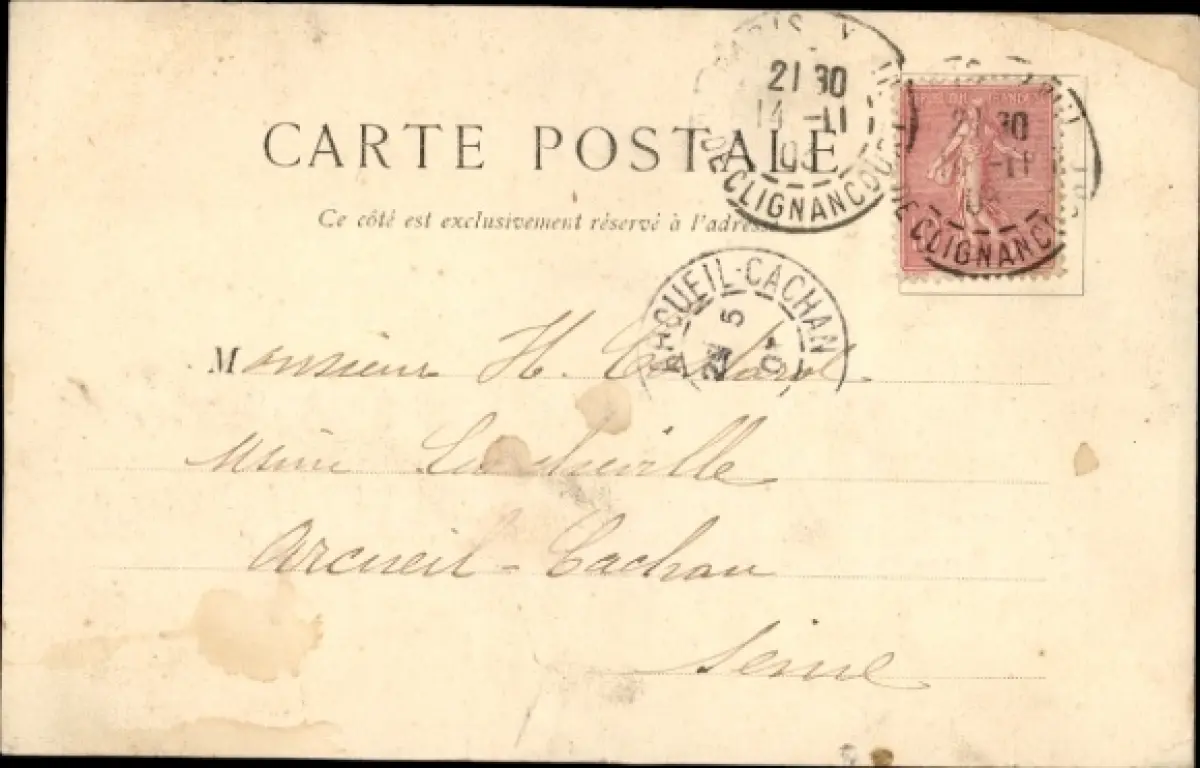 PARIS X
21 30
14 -11
03
DE CLIGNANCOURT
21 30
-11
03
DE CLIGNANC
CARTE POSTALE
Ce côté est exclusivement réservé à l'adresse
ARCUEIL-CACHAN
5
Monsieur H.
Arcueil-Cachan
Seine